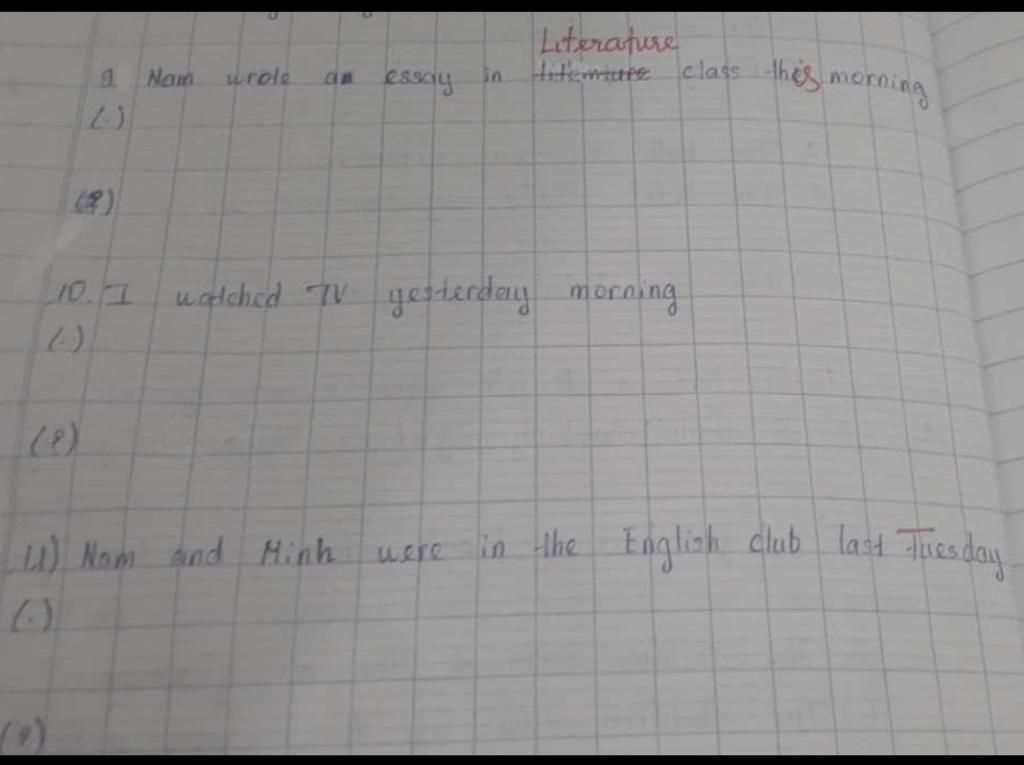 Literature
9 Nam wrole an essay in class this morning
(-)
(?)
10. I watched TV yesterday morning
(-)
(?)
11) Nam and Minh were in the English club last Tuesday
(-)
(?)